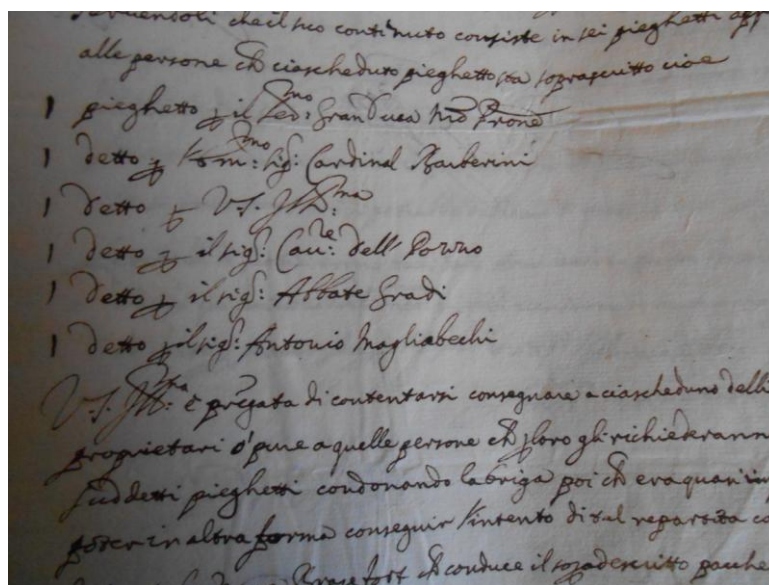 servendoli che il suo contenuto consiste in sei pieghetti
alle persone ch ciascheduto pieghetto sta soprascritto cioe
1 pieghetto p il Ser:mo Gran Duca Nro Prone
1 detto p l'Em:mo Sig: Cardinal Barberini
1 detto p V.S. Ill:ma
1 detto p il Sig: Cav:re dell'
1 detto p il sig: Abbate Gradi
1 detto p il sig: Antonio Magliabechi
V.S. Ill:ma è pregata di contentarsi consegnare a ciascheduno delli
proprietari o' pure a quelle persone ch p loro gli richiederann
suddetti pieghetti condonando la briga poi ch era quasi im
poter in altra forma conseguir l'intento di tal repartita
ch conduce il sopradescritto pacche